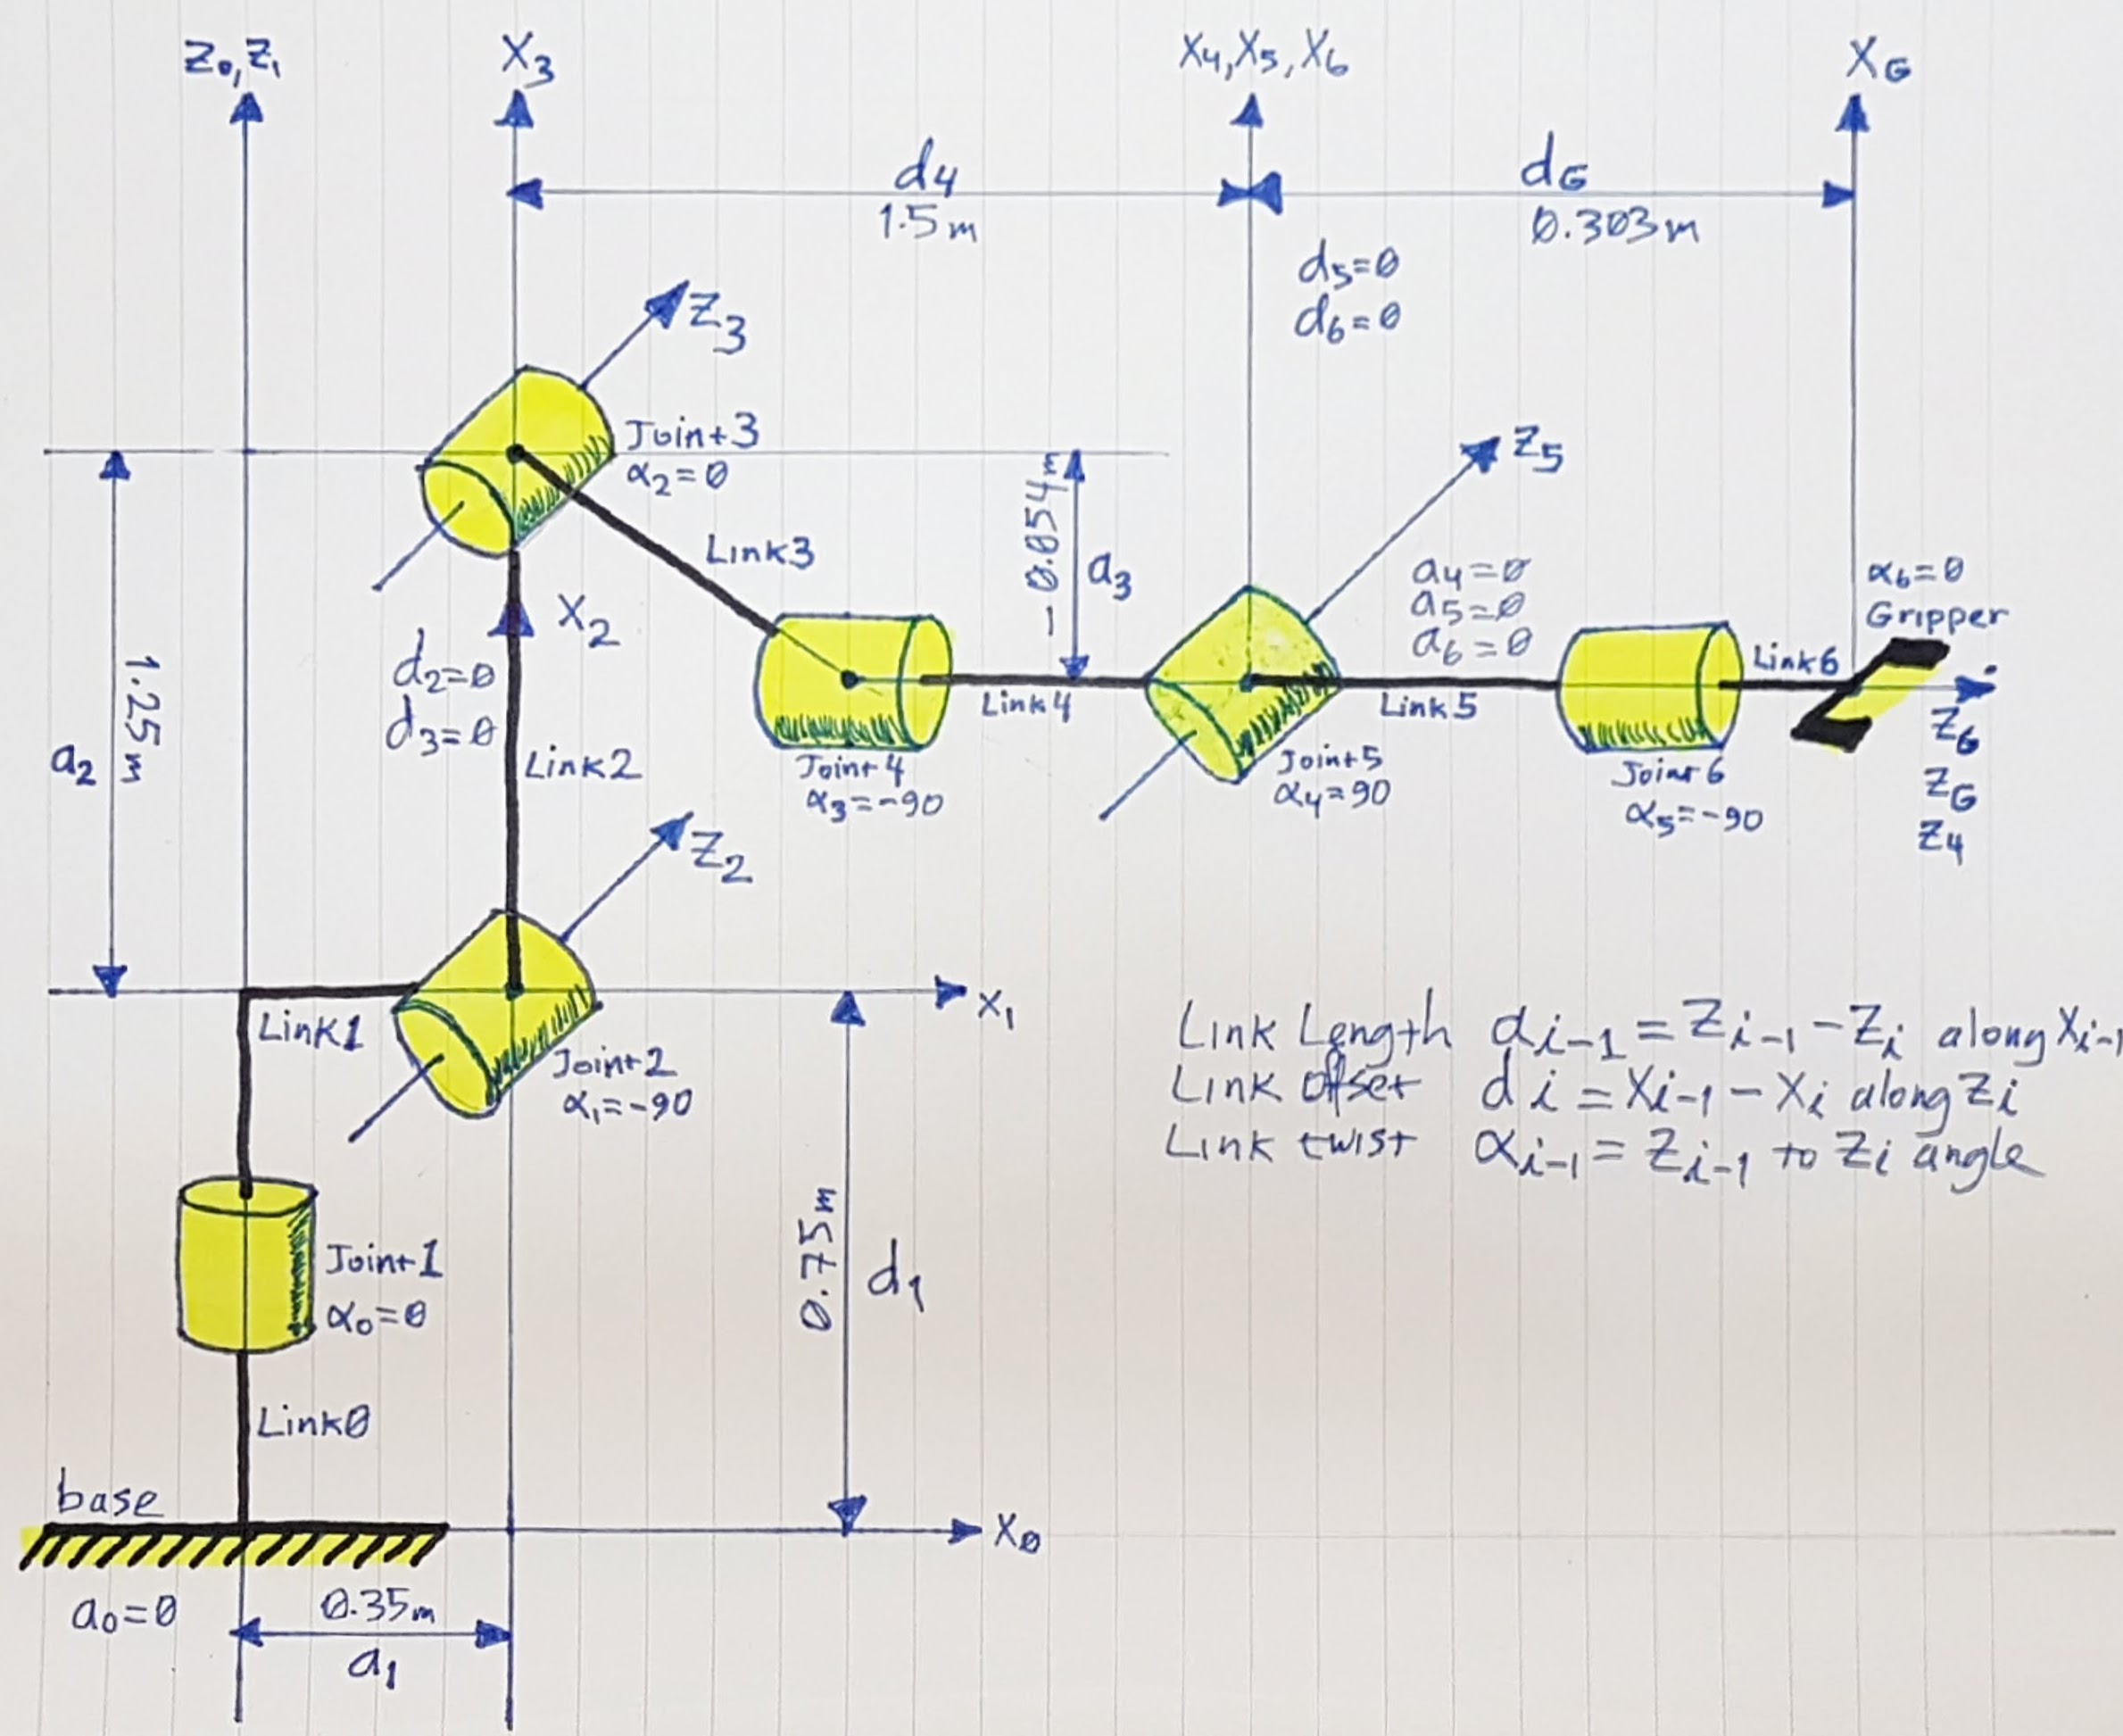 Z0,Z1
X3
X4,X5,X6
XG
d4
1.5m
dG
0.303m
d5=0
d6=0
Z3
Joint3
α2=0
Link3
-0.054m
a3
Z5
a4=0
a5=0
a6=0
α6=0
Gripper
X2
d2=0
d3=0
Link2
1.25m
a2
Joint4
α3=-90
Link4
Joint5
α4=90
Link5
Joint6
α5=-90
Link6
Z6
ZG
Z4
Z2
X1
Link1
Joint2
α1=-90
Link Length ai-1 = Zi-1 - Zi along Xi-1
Link Offset di = Xi-1 - Xi along Zi
Link twist αi-1 = Zi-1 to Zi angle
Joint1
α0=0
0.75m
d1
Link0
base
X0
a0=0
0.35m
a1